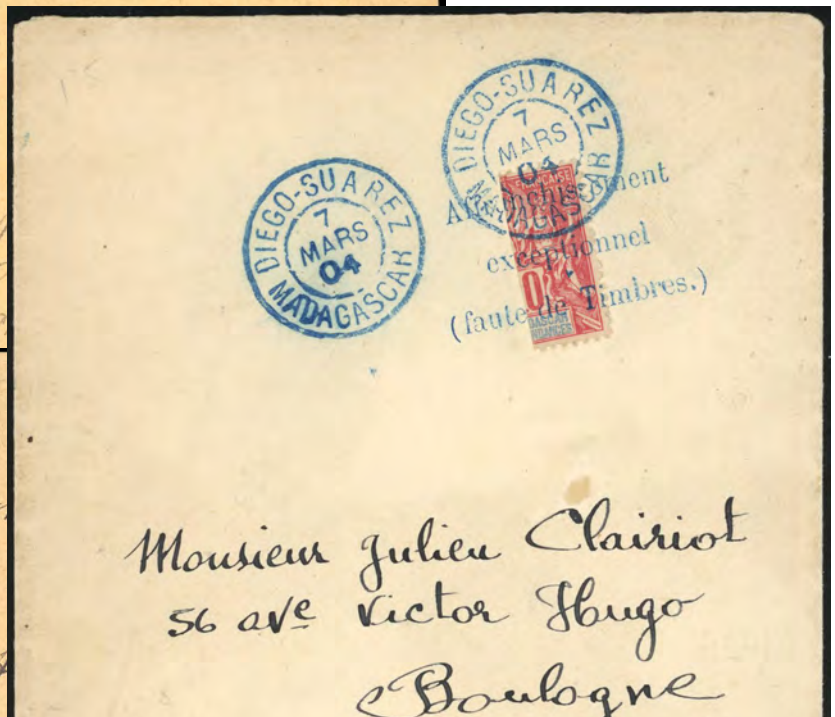 DIEGO-SUAREZ
7
MARS
04
MADAGASCAR
DIEGO-SUAREZ
7
MARS
04
MADAGASCAR
Affranchissement
exceptionnel
(faute de Timbres.)
Monsieur Julien Clairiot
56 ave Victor Hugo
Boulogne